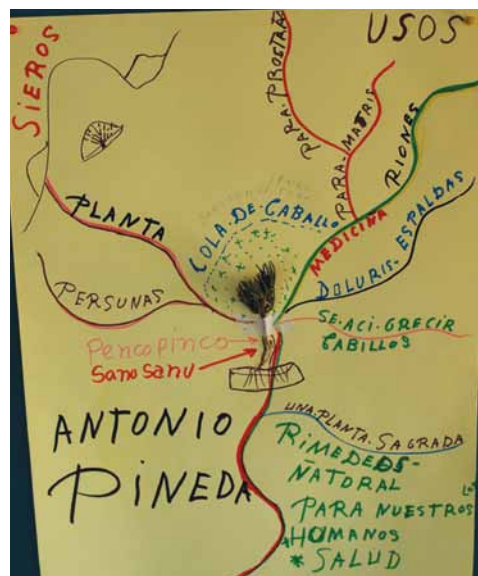 USOS
SIEROS
PARA-PROSTRAO
PARA-MATRIS
RIONES
MEDICINA
PLANTA
COLA-DE-CABALLO
DOLURIS-ESPALDAS
PERSUNAS
SE-ACI-GRECIR
CABILLOS
Pencopinco
Sanosanu
ANTONIO
PINEDA
UNA-PLANTA-SAGRADA
RIMEDEDS-
ÑATORAL
PARA NUESTROS
*HUMANOS
* SALUD